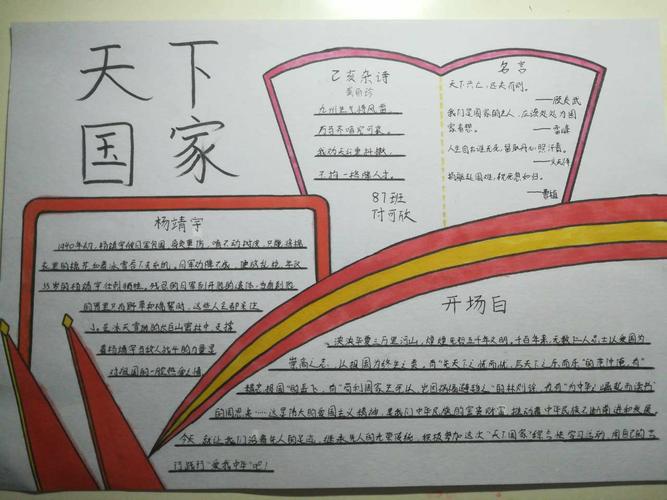 天下
国家
己亥杂诗
九州生气恃风雷
万马齐喑究可哀
我劝天公重抖擞
不拘一格降人才
8.1班
付可欣
名言
天下兴亡，匹夫有则。
——顾炎武
我们是国家的主人，应该处处为国
家着想。
——雷锋
人生自古谁无死，留取丹心照汗青。
——文天祥
捐躯赴国难，视死忽如归。
——曹植
杨靖宇
1940年2月，杨靖宇被日军包围
衣里的棉花和着冰雪吞下去
35岁的杨靖宇壮烈牺牲。残忍的日军剖开他的遗体，当看到他
的胃里只有野草和棉絮时，这些人全都呆住
了。在冰天雪地的长白山密林中，支撑
着杨靖宇与敌人战斗的力量是
对祖国的一腔热血
开场白
泱泱华夏三万里河山，煌煌屯初五千年文明，千百年来，无数仁人志士以爱国为
崇高之志，以报国为终生之责，有"先天下之忧而忧，后天下之乐而乐"的范仲淹，有"
精忠报国"的岳飞，有"苟利国家生死以，岂因祸福避趋之"的林则徐，有"为中华之崛起而读书"
的周恩来……这是伟大的爱国主义精神，是我们中华民族的宝贵财富，推动着中华民族不断向前和发展。
今天，就让我们沿着先人的足迹，继承先人的光荣传统，积极参加这次"天下国家"综合性学习活动，用自己的言
行践行"爱我中华"吧！